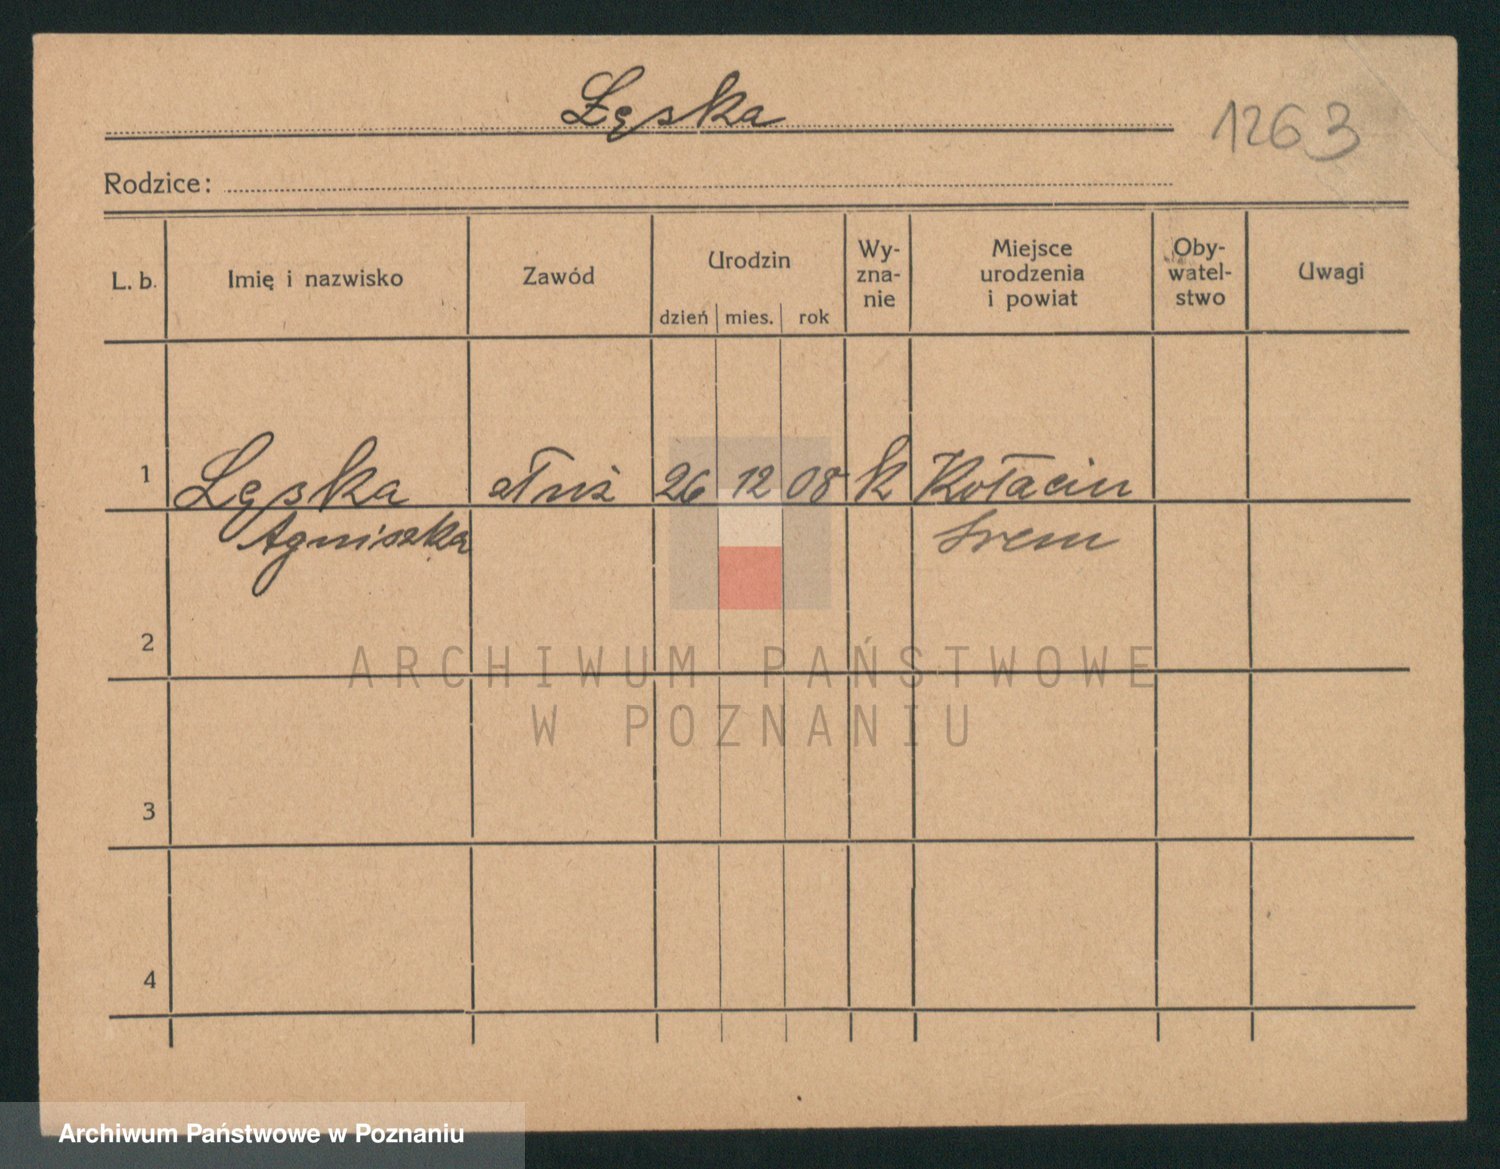 Łęska
1263
Rodzice:
L. b.
Imię i nazwisko
Zawód
Urodzin
dzień
mies.
rok
Wy-
zna-
nie
Miejsce
urodzenia
i powiat
Oby-
watel-
stwo
Uwagi
1
Łęska
26
12
08
k
Kołacin
Agniszka
Srem
2
3
4
ARCHIWUM PAŃSTWOWE
W POZNANIU
Archiwum Państwowe w Poznaniu